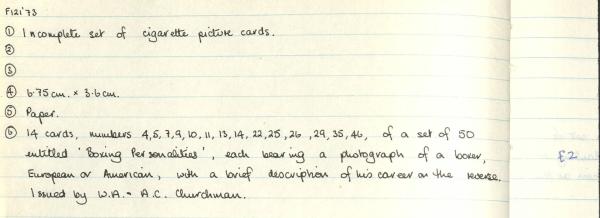 F121'73
① Incomplete set of cigarette picture cards.
②
③
④ 6.75cm. × 3.6cm.
⑤ Paper.
⑥ 14 cards, numbers 4,5,7,9,10,11,13,14,22,25,26,29,35,46, of a set of 50
entitled 'Boxing Personalities', each bearing a photograph of a boxer,
European or American, with a brief description of his career on the reverse.
Issued by W.A. & A.C. Churchman.
£2